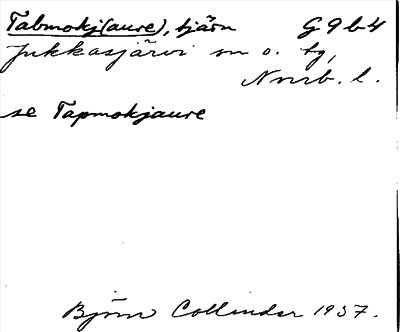 Tabmokj(aure), tjärn G9b4
Jukkasjärvi sn o. tg,
Norrb. l.
se Tapmokjaure
Björn Collinder 1937.